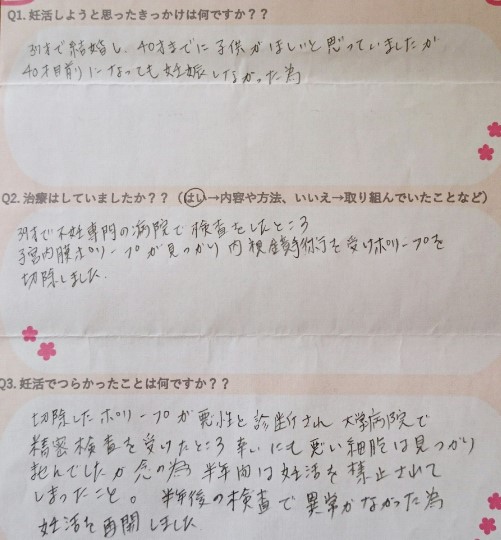 Q1. 妊活しようと思ったきっかけは何ですか？？
で結婚し、40才までに子供がほしいと思っていましたが
40才目前になっても妊娠しなかった為
Q2. 治療はしていましたか？？（はい→内容や方法、いいえ→取り組んでいたことなど）
39才で不妊専門の病院で検査をしたところ
子宮内膜ポリープが見つかり内視鏡手術を受けポリープを
切除しました。
Q3. 妊活でつらかったことは何ですか？？
切除したポリープが悪性と診断され 大学病院で
精密検査を受けたところ 幸いにも悪い細胞は見つかり
ませんでしたが 念の為 半年間は妊活を禁止されて
しまったこと。 半年後の検査で異常がなかった為
妊活を再開しました